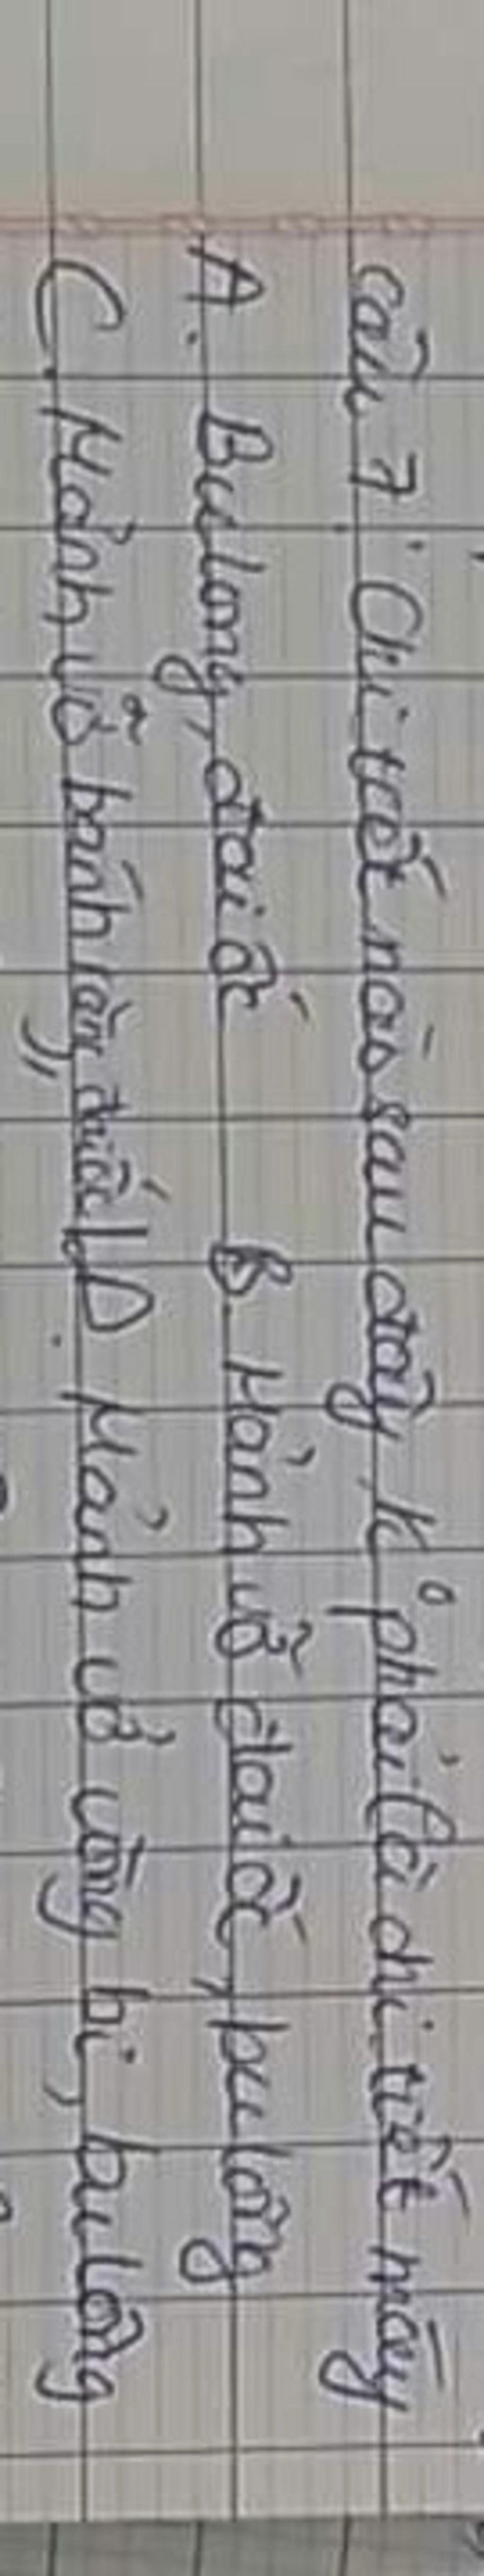 Câu 7: Chi tiết nào sau đây k° phải là chi tiết máy
A. Bulong, đai ốc B. Mảnh vỡ đai ốc, bu lông
C. Mảnh vỡ bánh răng, đai ốc D. Mảnh vỡ vòng bi, bu lông